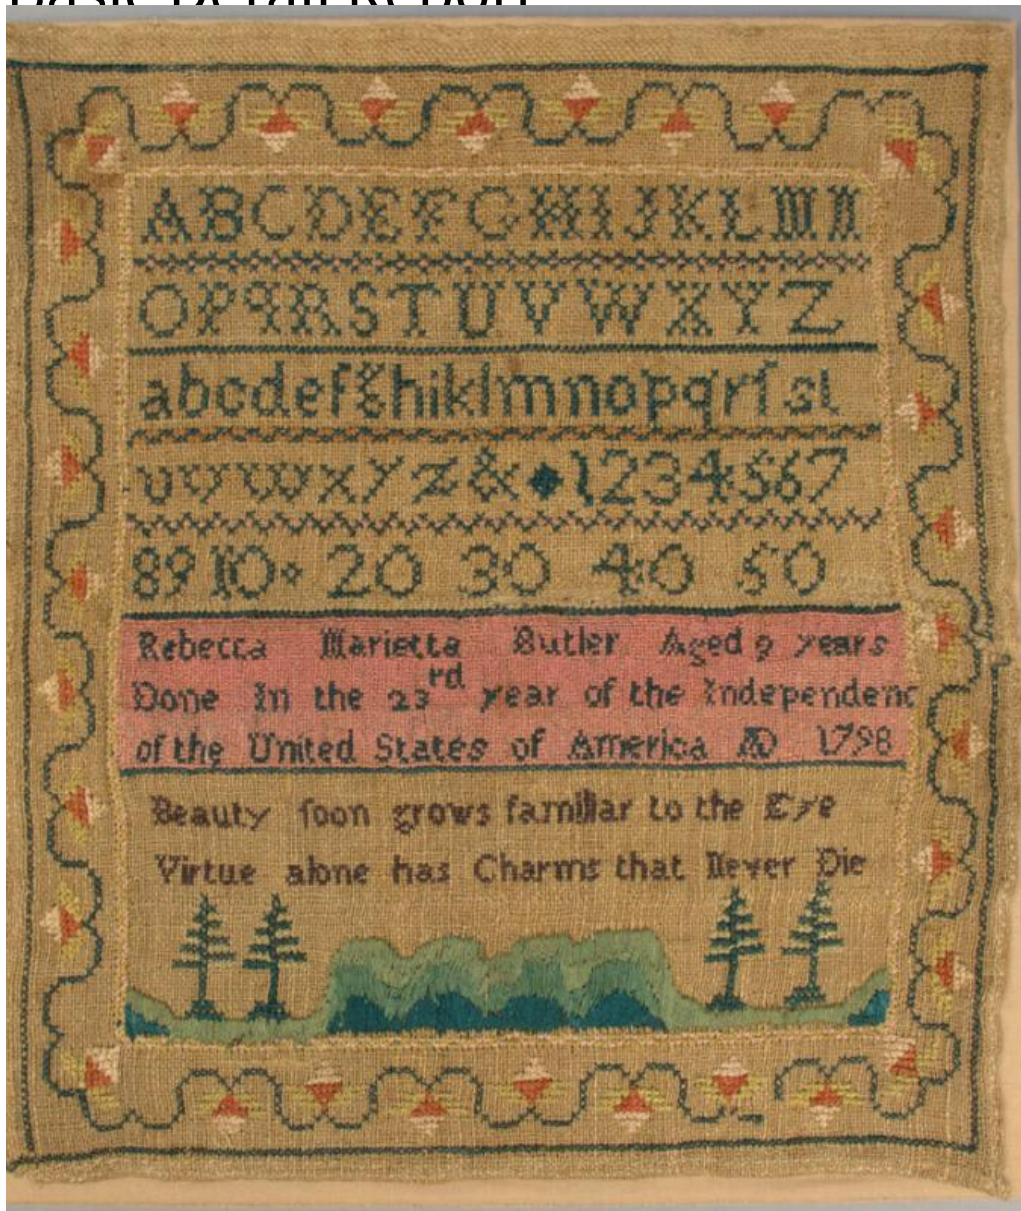 Basic Detail Report
ABCDEFGHIJKLMN
OPqRSTUVWXYZ
abcdefghiklmnopqrſst
uvwxyz&◆1234567
8910 20 30 40 50
Rebecca Marietta Butler Aged 9 years
Done In the 23rd year of the Independenc
of the United States of America AD 1798
Beauty ſoon grows familiar to the Eye
Virtue alone has Charms that Never Die